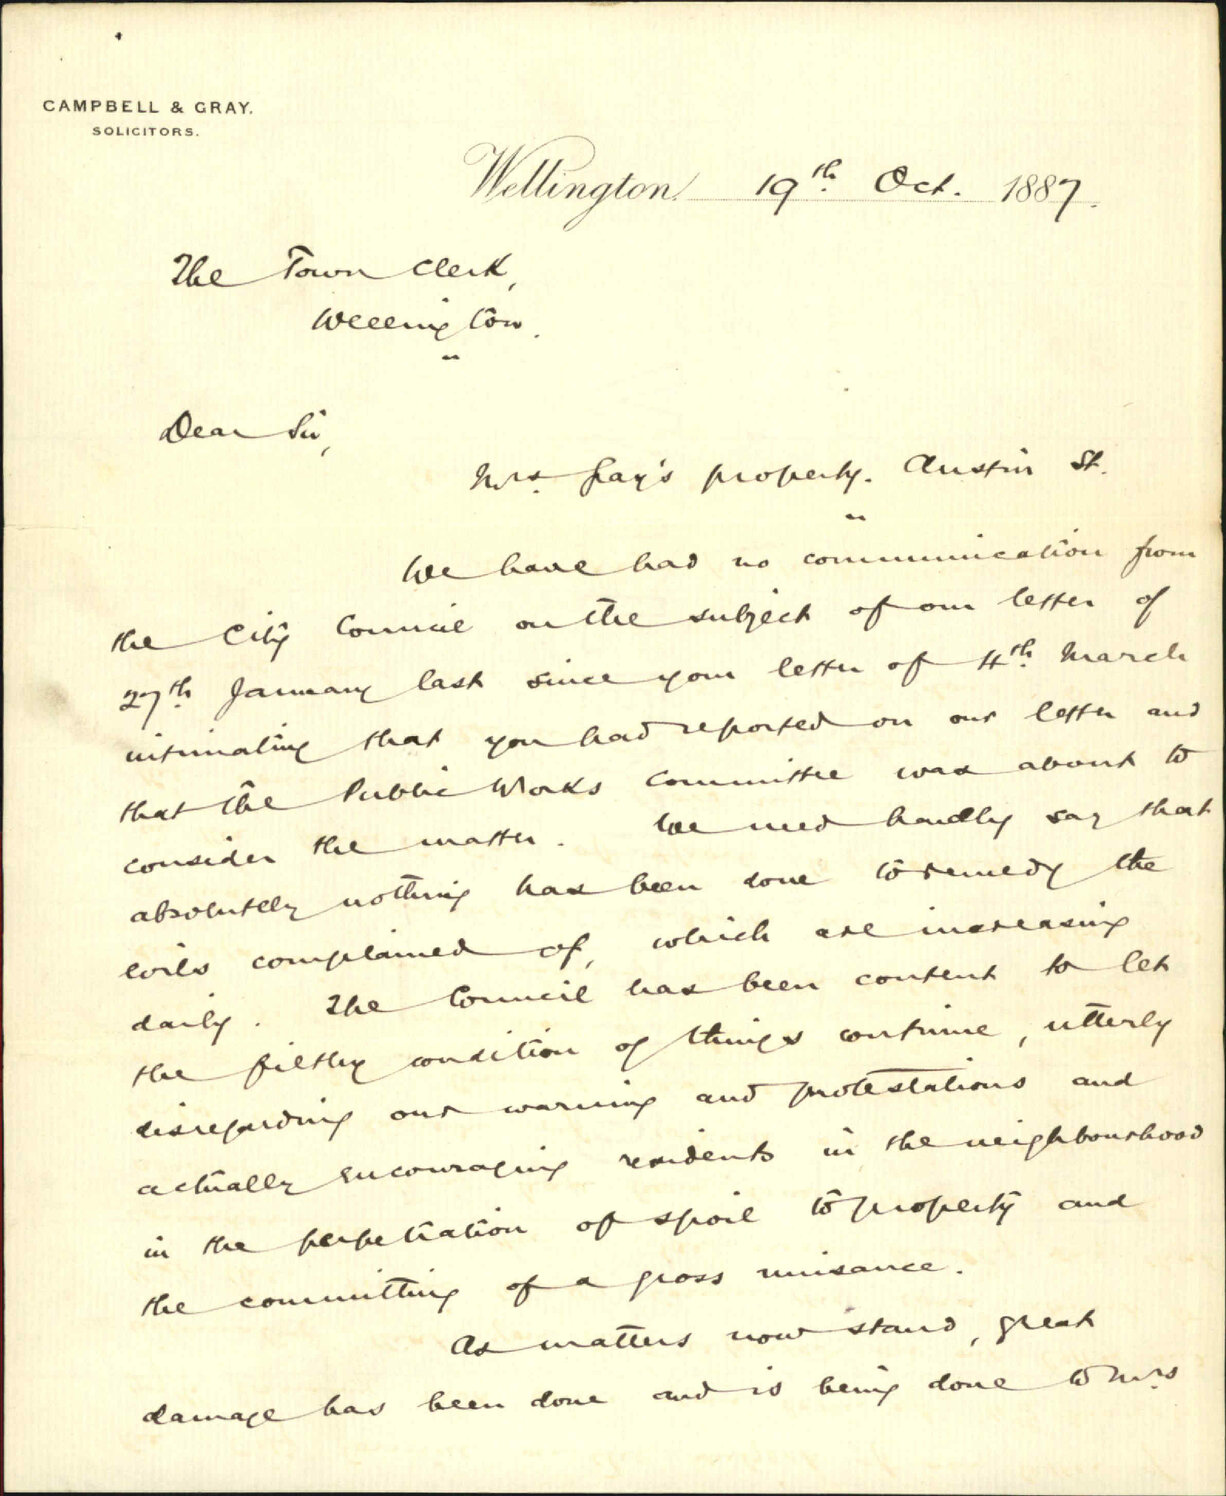 CAMPBELL & GRAY.
SOLICITORS.
Wellington 19th Oct. 1887.
The Town Clerk,
Wellington.
Dear Sir,
Mrs. Gay's property. Austin St.
We have had no communication from
the City Council on the subject of our letter of
27th January last since your letter of 4th March
intimating that you had reported on our letter and
that the Public Works Committee was about to
consider the matter. We need hardly say that
absolutely nothing has been done to remedy the
evils complained of, which are increasing
daily. The Council has been content to let
the filthy condition of things continue, utterly
disregarding our warning and protestations and
actually encouraging residents in the neighbourhood
in the perpetration of spoil to property and
the committing of a gross nuisance.
As matters now stand, great
damage has been done and is being done to Mrs